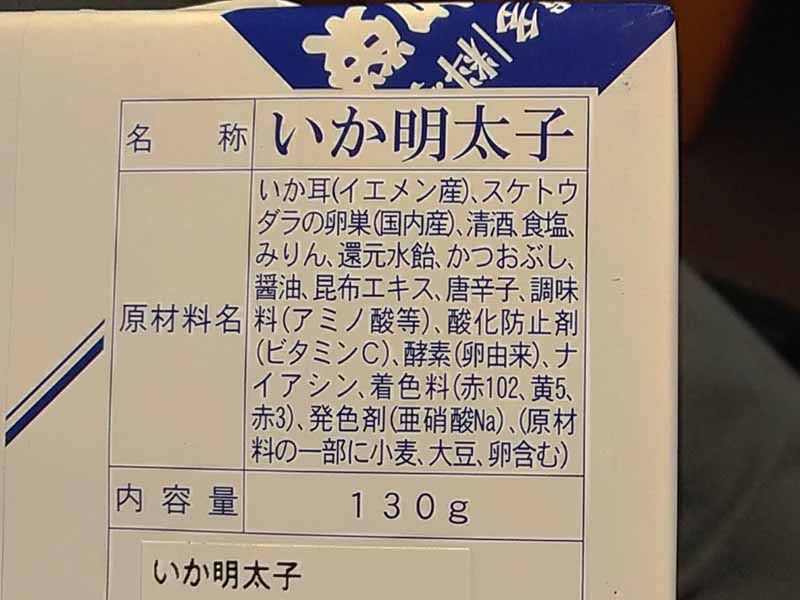 名称 いか明太子
原材料名
いか耳(イエメン産)、スケトウ
ダラの卵巣(国内産)、清酒、食塩、
みりん、還元水飴、かつおぶし、
醤油、昆布エキス、唐辛子、調味
料(アミノ酸等)、酸化防止剤
(ビタミンC)、酵素(卵由来)、ナ
イアシン、着色料(赤102、黄5、
赤3)、発色剤(亜硝酸Na)、(原材
料の一部に小麦、大豆、卵含む)
内容量 130g
いか明太子